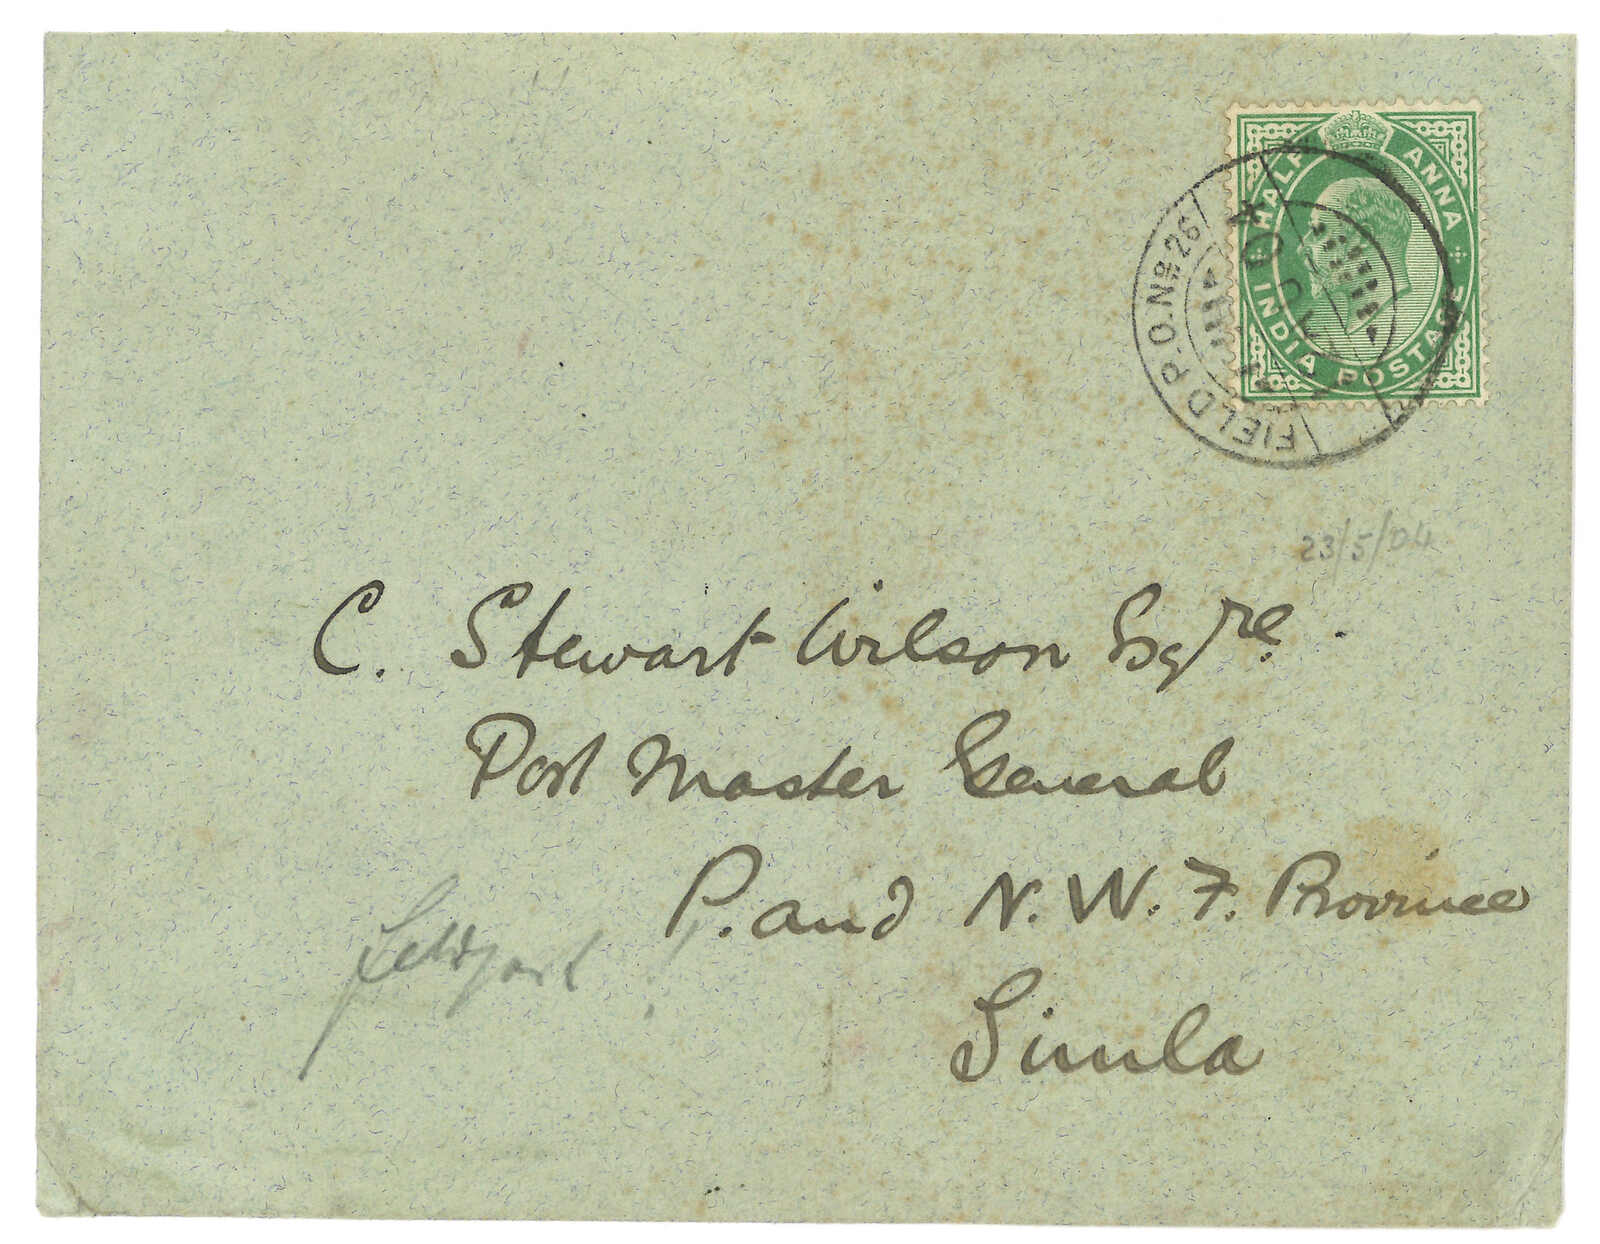 HALF ANNA
INDIA POSTAGE
FIELD P.O. No. 26
23/5/04
C. Stewart Wilson Esqre.
Post Master General
P. and N. W. F. Province
Simla